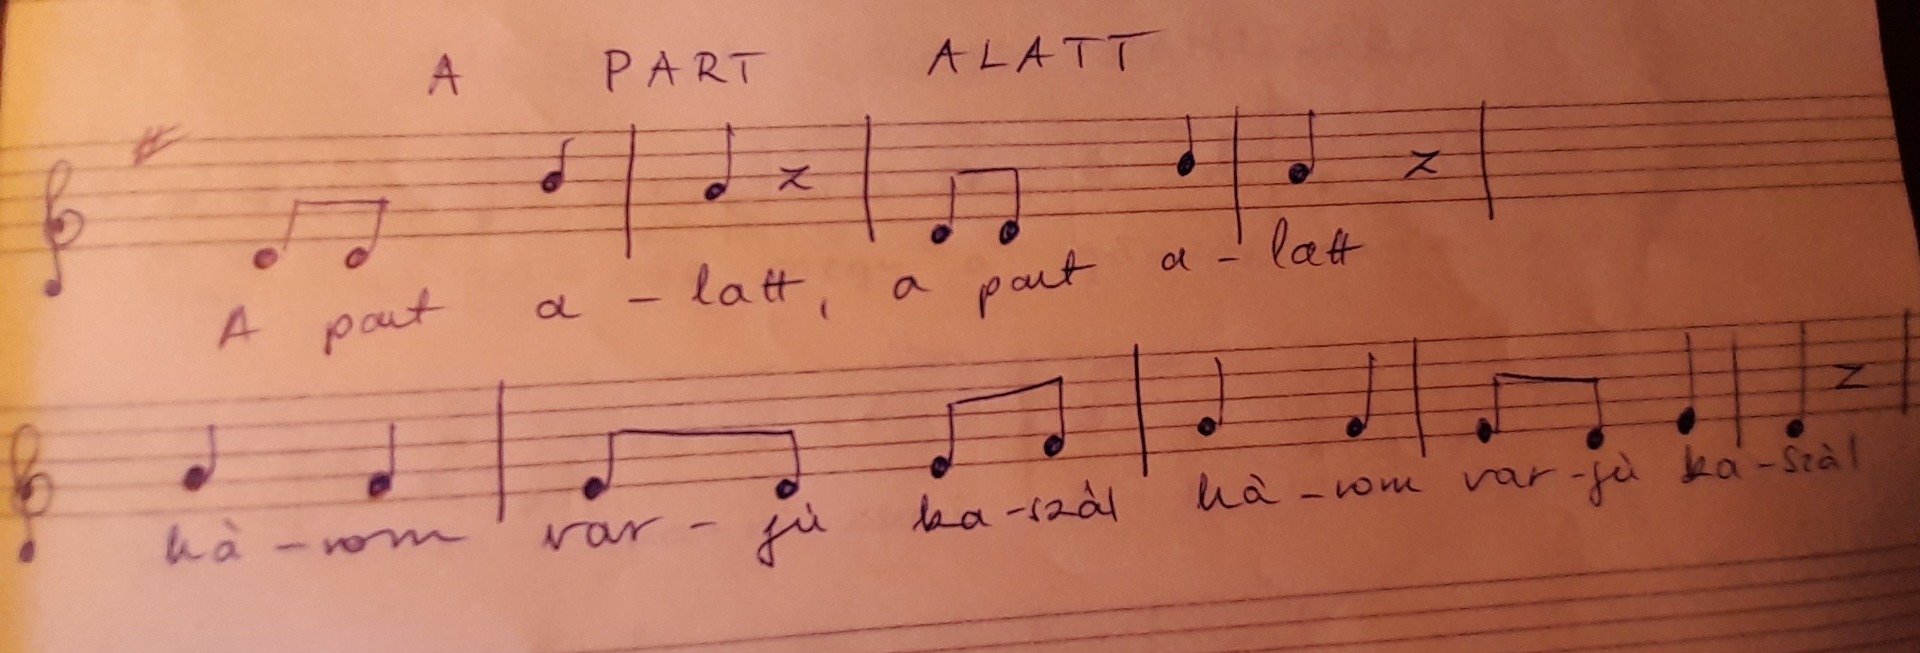 A PART ALATT
A part a - latt, a part a - latt
hà - rom var - jù ka - szàl hà - rom var - jù ka - szàl